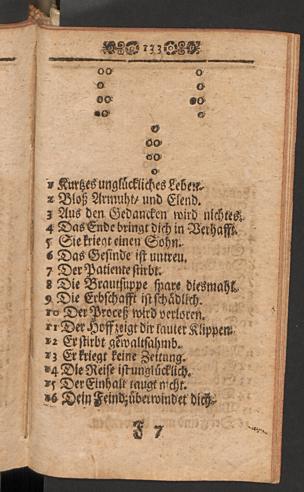 133
1 Kurtzes unglückliches Leben.
2 Bloß Armuht/ und Elend.
3 Aus den Gedancken wird nichtes.
4 Das Ende bringt dich in Verhafft.
5 Sie kriegt einen Sohn.
6 Das Gesinde ist untreu.
7 Der Patiente stirbt.
8 Die Brautsuppe spare diesmahl.
9 Die Erbschafft ist schädlich.
10 Der Proceß wird verloren.
11 Der Hoff zeigt dir lauter Klippen.
12 Er stirbt gewaltsahmb.
13 Er kriegt keine Zeitung.
14 Die Reise ist unglücklich.
15 Der Einhalt taugt nicht.
16 Dein Feind überwindet dich.
F 7